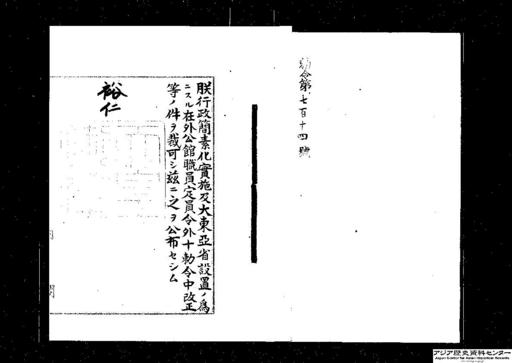 勅令第七百十四號
朕行政簡素化實施及大東亞省設置ノ爲
ニスル在外公館職員定員令外十勅令中改正
等ノ件ヲ裁可シ茲ニ之ヲ公布セシム
裕仁
アジア歴史資料センター
Japan Center for Asian Historical Records